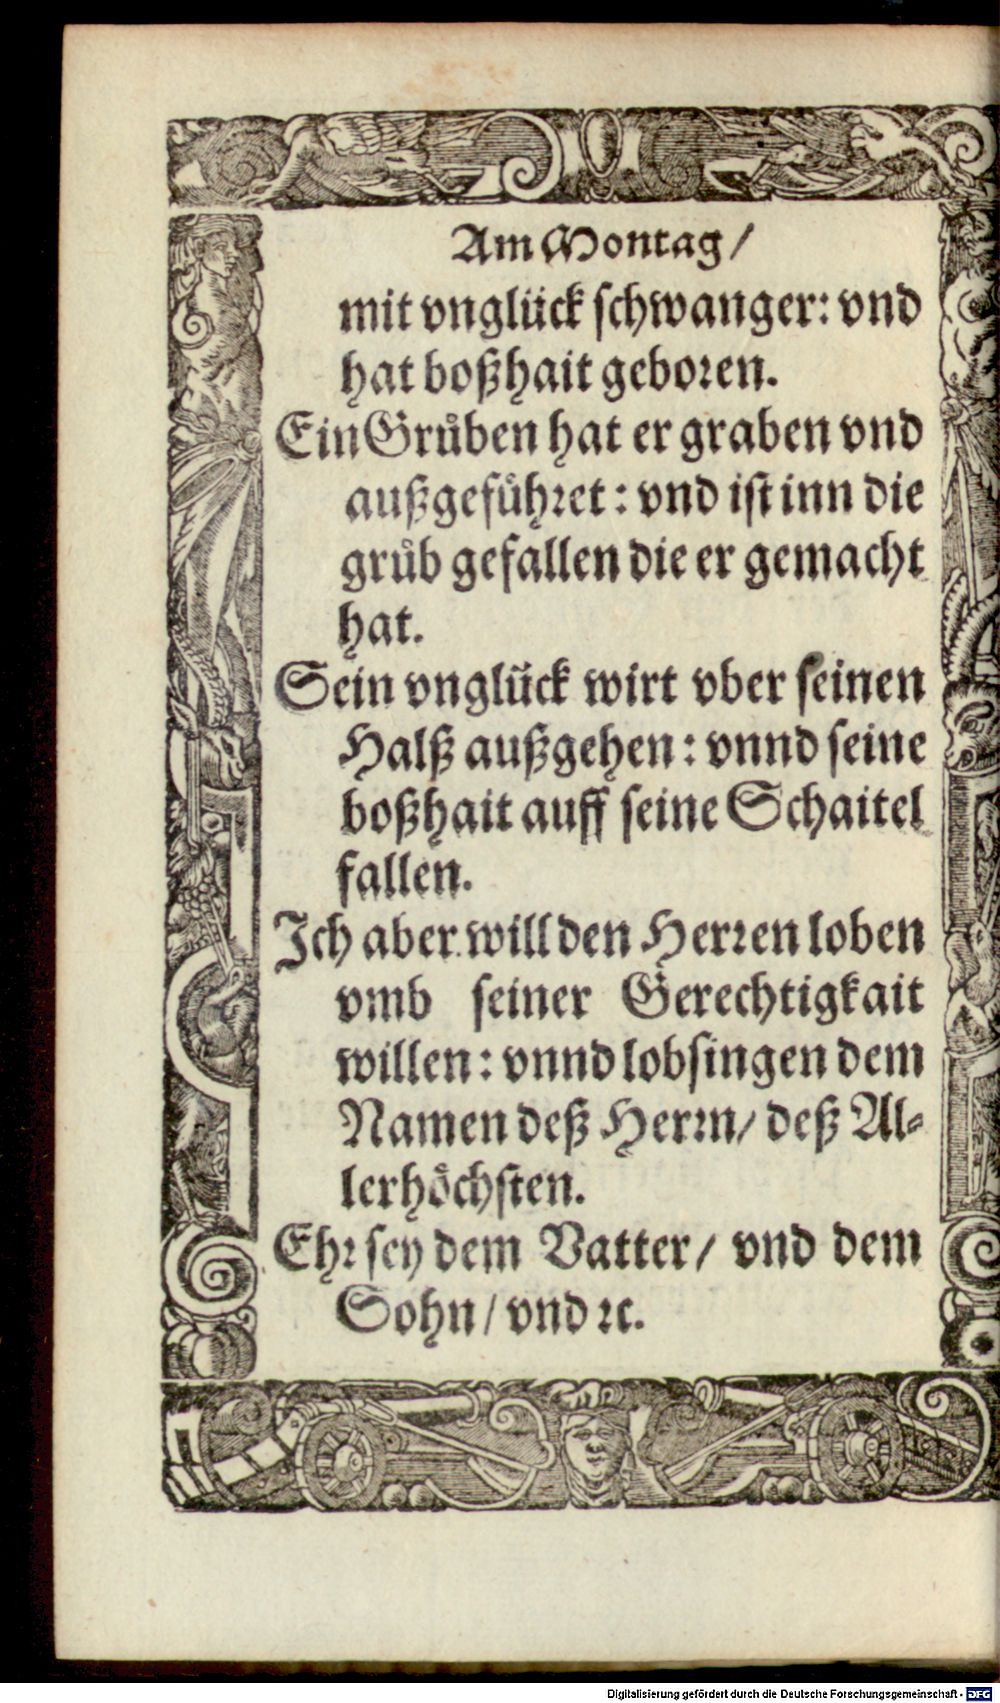 Am Montag/
mit vnglück schwanger: vnd
hat boßhait geboren.
Ein Grůben hat er graben vnd
außgefůhret: vnd ist inn die
grůb gefallen die er gemacht
hat.
Sein vnglück wirt vber seinen
Halß außgehen: vnnd seine
boßhait auff seine Schaitel
fallen.
Ich aber will den Herren loben
vmb seiner Gerechtigkait
willen: vnnd lobsingen dem
Namen deß Herrn/ deß Al-
lerhöchsten.
Ehr sey dem Vatter/ vnd dem
Sohn/ vnd ꝛc.
Digitalisierung gefördert durch die Deutsche Forschungsgemeinschaft - DFG